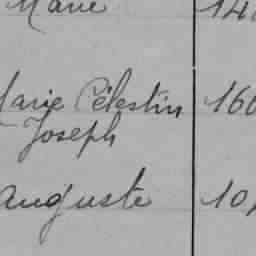 Marie
Marie Célestin 160
Joseph
Auguste